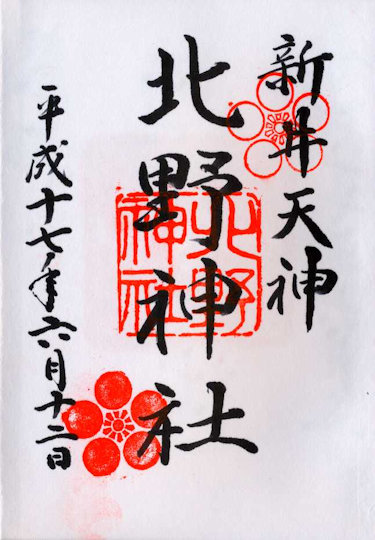 新井天神
北野神社
北野神社
平成十七年六月十二日